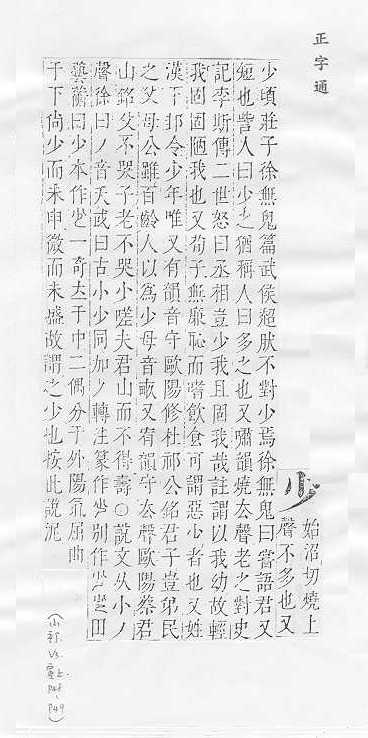 正字通
少
始沼切燒上
聲不多也又
少頃莊子徐無鬼篇武侯超然不對少焉徐無鬼曰嘗語君又
短也訾人曰少之猶稱人曰多之也又嘯韻燒去聲老之對史
記李斯傳二世怒曰丞相豈少我且固我哉註謂以我幼故輕
我固固陋我也又荀子無廉恥而嗜飲食可謂惡少者也又姓
漢下邳令少年唯又有韻音守歐陽修杜祁公銘君子豈弟民
之父母公雖百齡人以為少母音畝又宥韻守去聲歐陽蔡君
山銘父不哭子老不哭少嗟夫君山而不得壽○說文从小丿
聲徐曰丿音夭或曰古小少同加丿轉注篆作別作田
藝衡曰少本作一奇去于中二偶分于外陽氣屈曲
于下尙少而未申微而未盛故謂之少也按此說泥